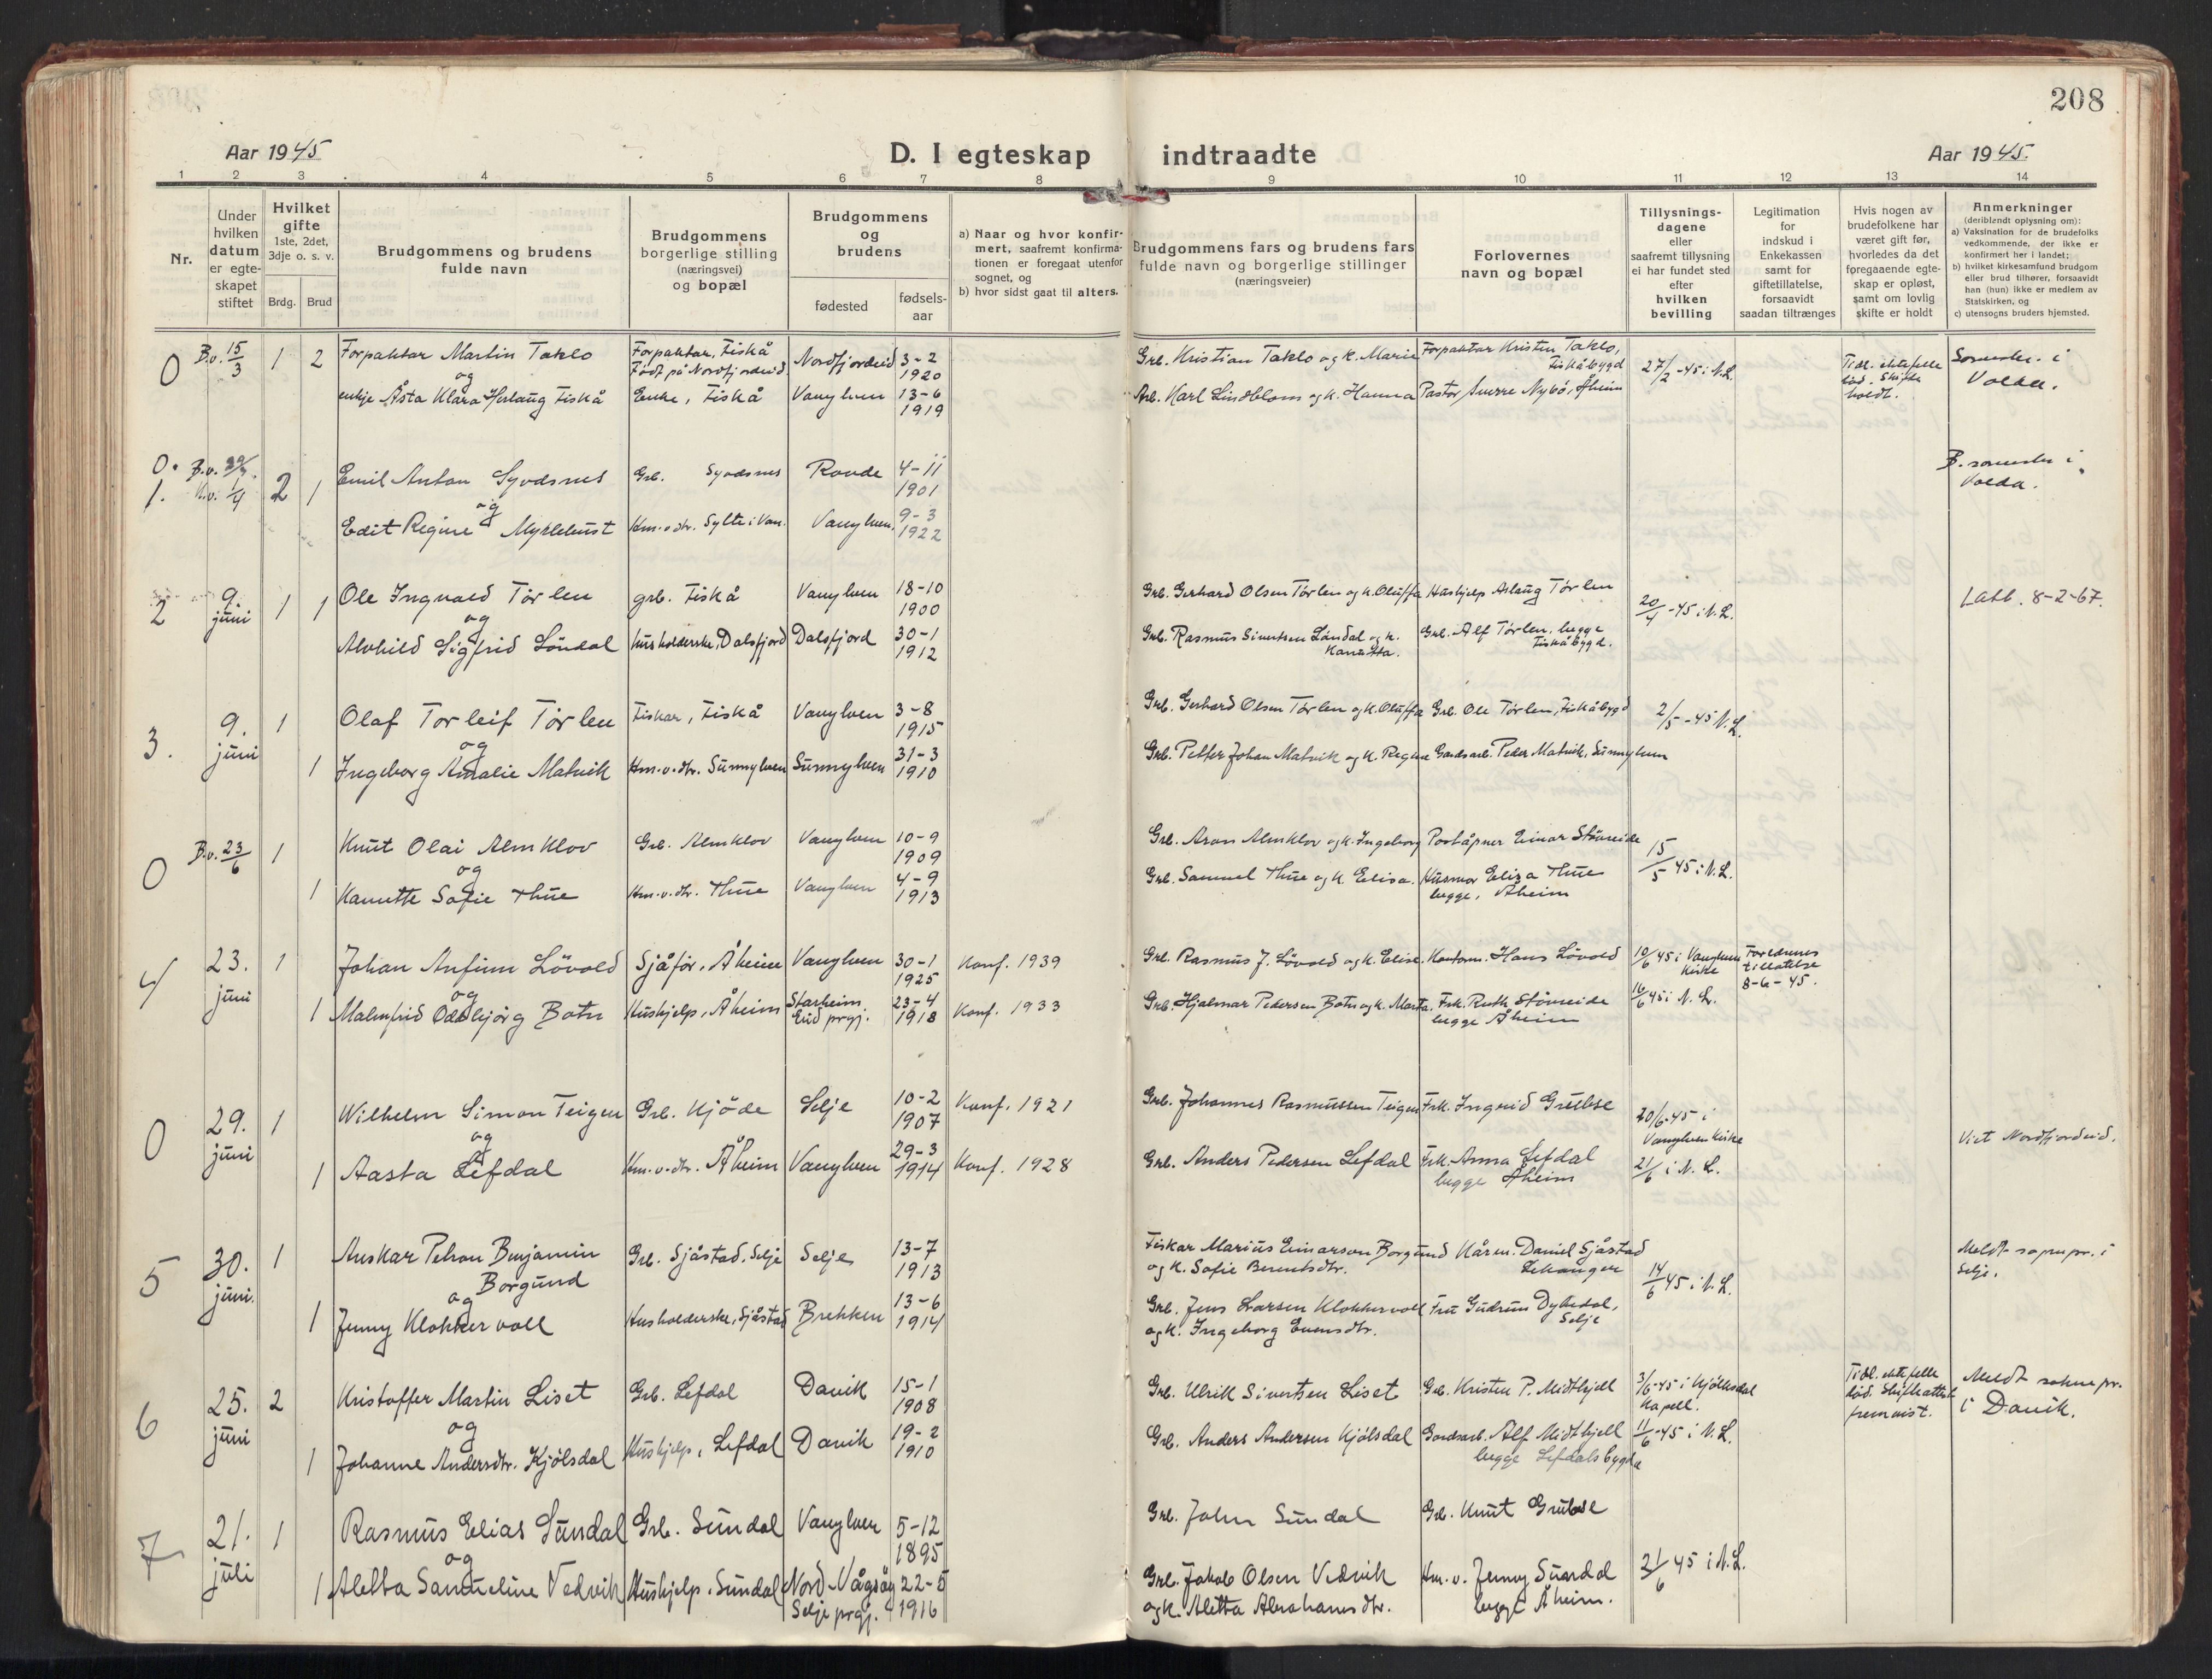 208
Aar 1945
D. I egteskap indtraadte
Aar 1945.
1 2 3 4 5 6 7 8 9 10 11 12 13 14
Nr.
Under hvilken datum er egteskapet stiftet
Hvilket gifte
1ste, 2det, 3dje o. s. v.
Brdg. Brud
Brudgommens og brudens fulde navn
Brudgommens borgerlige stilling (næringsvei) og bopæl
Brudgommens og brudens
fødested
fødsels-aar
a) Naar og hvor konfir-
mert, saafremt konfirma-
tionen er foregaat utenfor
sognet, og
b) hvor sidst gaat til alters.
Brudgommens fars og brudens fars
fulde navn og borgerlige stillinger
(næringsveier)
Forlovernes
navn og bopæl
Tillysnings-
dagene
eller
saafremt tillysning
ei har fundet sted
efter
hvilken
bevilling
Legitimation
for
indskud i
Enkekassen
samt for
giftetillatelse,
forsaavidt
saadan tiltrænges
Hvis nogen av
brudefolkene har
været gift før,
hvorledes da det
foregaaende egte-
skap er opløst,
samt om lovlig
skifte er holdt
Anmerkninger
(deriblandt oplysning om):
a) Vaksination for de brudefolks
vedkommende, der ikke er
konfirmert her i landet;
b) hvilket kirkesamfund brudgom
eller brud tilhører, forsaavidt
han (hun) ikke er medlem av
Statskirken, og
c) utensogns bruders hjemsted.
0 B.v. 15/3 1 2 Forpaktar Martin Taklo Forpaktar, Fiskå Nordfjordeid 3-2 Grb. Kristian Taklo og k. Marie Forpaktar Kristen Taklo, 27/2-45 i N.L. Tidl. ektefelle
og Født på Nordfjordeid 1920 Fiskåbygd død. Skifte
enkje Åsta Klara Herlaug Fiskå Enke, Fiskå Vanylven 13-6 Arb. Karl Lindblom og k. Hanna Pastor Sverre Nybö, Åheim holdt. Volda.
1919
0. B.v. B. i
1. K.v. 1/4 2 1 Emil Anton Syvdsnes Grb. Syvdsnes Rovde 4-11 Volda.
og 1901
Edit Regine Myklebust Hm.v.dtr. Sylte i Van. Vanylven, 9-3
1922
2 9. 1 1 Ole Ingvald Tørlen grb. Fiskå Vanylven 18-10 Grb. Gerhard Olsen Tørlen og k. Oluffa Hushjelp Aslaug Tørlen 20/4-45 i N.L. 8-2-67.
juni og 1900
Alvhild Sigfrid Löndal husholderske, Dalsfjord Dalsfjord 30-1 Grb. Rasmus Sivertsen Löndal og k. Grb. Alf Tørlen, begge
1912 Kanutta. Fiskåbygd.
3. 9. 1 Olaf Torleif Tørlen Fiskar, Fiskå Vanylven 3-8 Grb. Gerhard Olsen Tørlen og k. Oluffa Grb. Ole Tørlen, Fiskåbygd 2/5-45 N.L.
juni og 1915
1 Ingeborg Amalie Matvik Hm.v.dtr. Sunnylven Sunnylven 31-3 Grb. Petter Johan Matvik og k. Regine Gardsarb. Peder Matvik, Sunnylven
1910
0 B.v. 23/6 1 Knut Olai Almklov Grb. Almklov Vanylven 10-9 Grb. Aron Almklov og k. Ingeborg Poståpner Einar Stöveide 15/5 45 i N.L.
og 1909
1 Kanutte Sofie Thue Hm.v.dtr. Thue Vanylven 4-9 Grb. Samuel Thue og k. Elisa. Husmor Eliza Thue
1913 begge, Åheim
4 23. 1 Johan Anfinn Lövold Sjåför, Åheim Vanylven 30-1 Konf. 1939 Grb. Rasmus J. Lövold og k. Elise. Kontorm. Hans Lövold 10/6 45 i Vanylven Foreldrenes
juni og 1925 kirke tillatelse
1 Malmfrid Oddbjörg Botn Hushjelp, Åheim Starheim, 23-4 Konf. 1933 Grb. Hjalmar Pedersen Botn og k. Marta. Frk. Ruth Stöveide 16/6 45 i N.L. 8-6-45.
Eid prgj. 1918 begge Åheim
0 29. 1 Wilhelm Simon Teigen Grb. Kjöde Selje 10-2 Konf. 1921 Grb. Johannes Rasmussen Teigen Frk. Ingrid Grubse 20/6-45 i
juni og 1907 Vanylven kirke Viet Nordfjordeid.
1 Aasta Lefdal Hm.v.dtr. Åheim Vanylven 29-3 Konf. 1928 Grb. Anders Pedersen Lefdal Frk. Anna Lefdal 21/6 i N.L.
1914 begge Åheim
5 30. 1 Anskar Petron Benjamin Grb. Sjåstad, Selje Selje 13-7 Fiskar Marius Einarson Borgund Kårm. Daniel Sjåstad 14/6 45 i N.L. Meldt sogнepr. i
juni. Borgund 1913 og k. Sofie Berentsdtr. Leikanger Selje.
og
1 Jenny Klokkervoll Husholderske, Sjåstad Brekken 13-6 Grb. Jens Larsen Klokkervoll Fru Gudrun Dybedal,
1914 og k. Ingeborg Evensdtr. Selje
6 25. 2 Kristoffer Martin Liset Grb. Lefdal Davik 15-1 Grb. Ulrik Sivertsen Liset Grb. Kristen P. Midthjell 3/6-45 i Kjölsdal Tidl. ektefelle Meldt sokne pr.
juni og 1908 Kapell. död. Skifteattest i Davik.
1 Johanne Andersdtr. Kjölsdal Hushjelp, Lefdal Davik 19-2 Grb. Anders Andersen Kjölsdal Gardsarb. Alf Midthjell 11/6-45 i N.L. fremvist.
1910 begge Lefdalsbygda
7 21. 1 Rasmus Elias Sundal Grb. Sundal Vanylven 5-12 Grb. John Sundal Grb. Knut Grubse 21/6 45 i N.L.
juli og 1895
1 Aletta Samueline Vedvik Hushjelp, Sundal Nord-Vågsöy 22-5 Grb. Jakob Olsen Vedvik Hm.v. Jenny Sundal
Selje prgj. 1916 og k. Aletta Abrahamsdtr. begge Åheim.